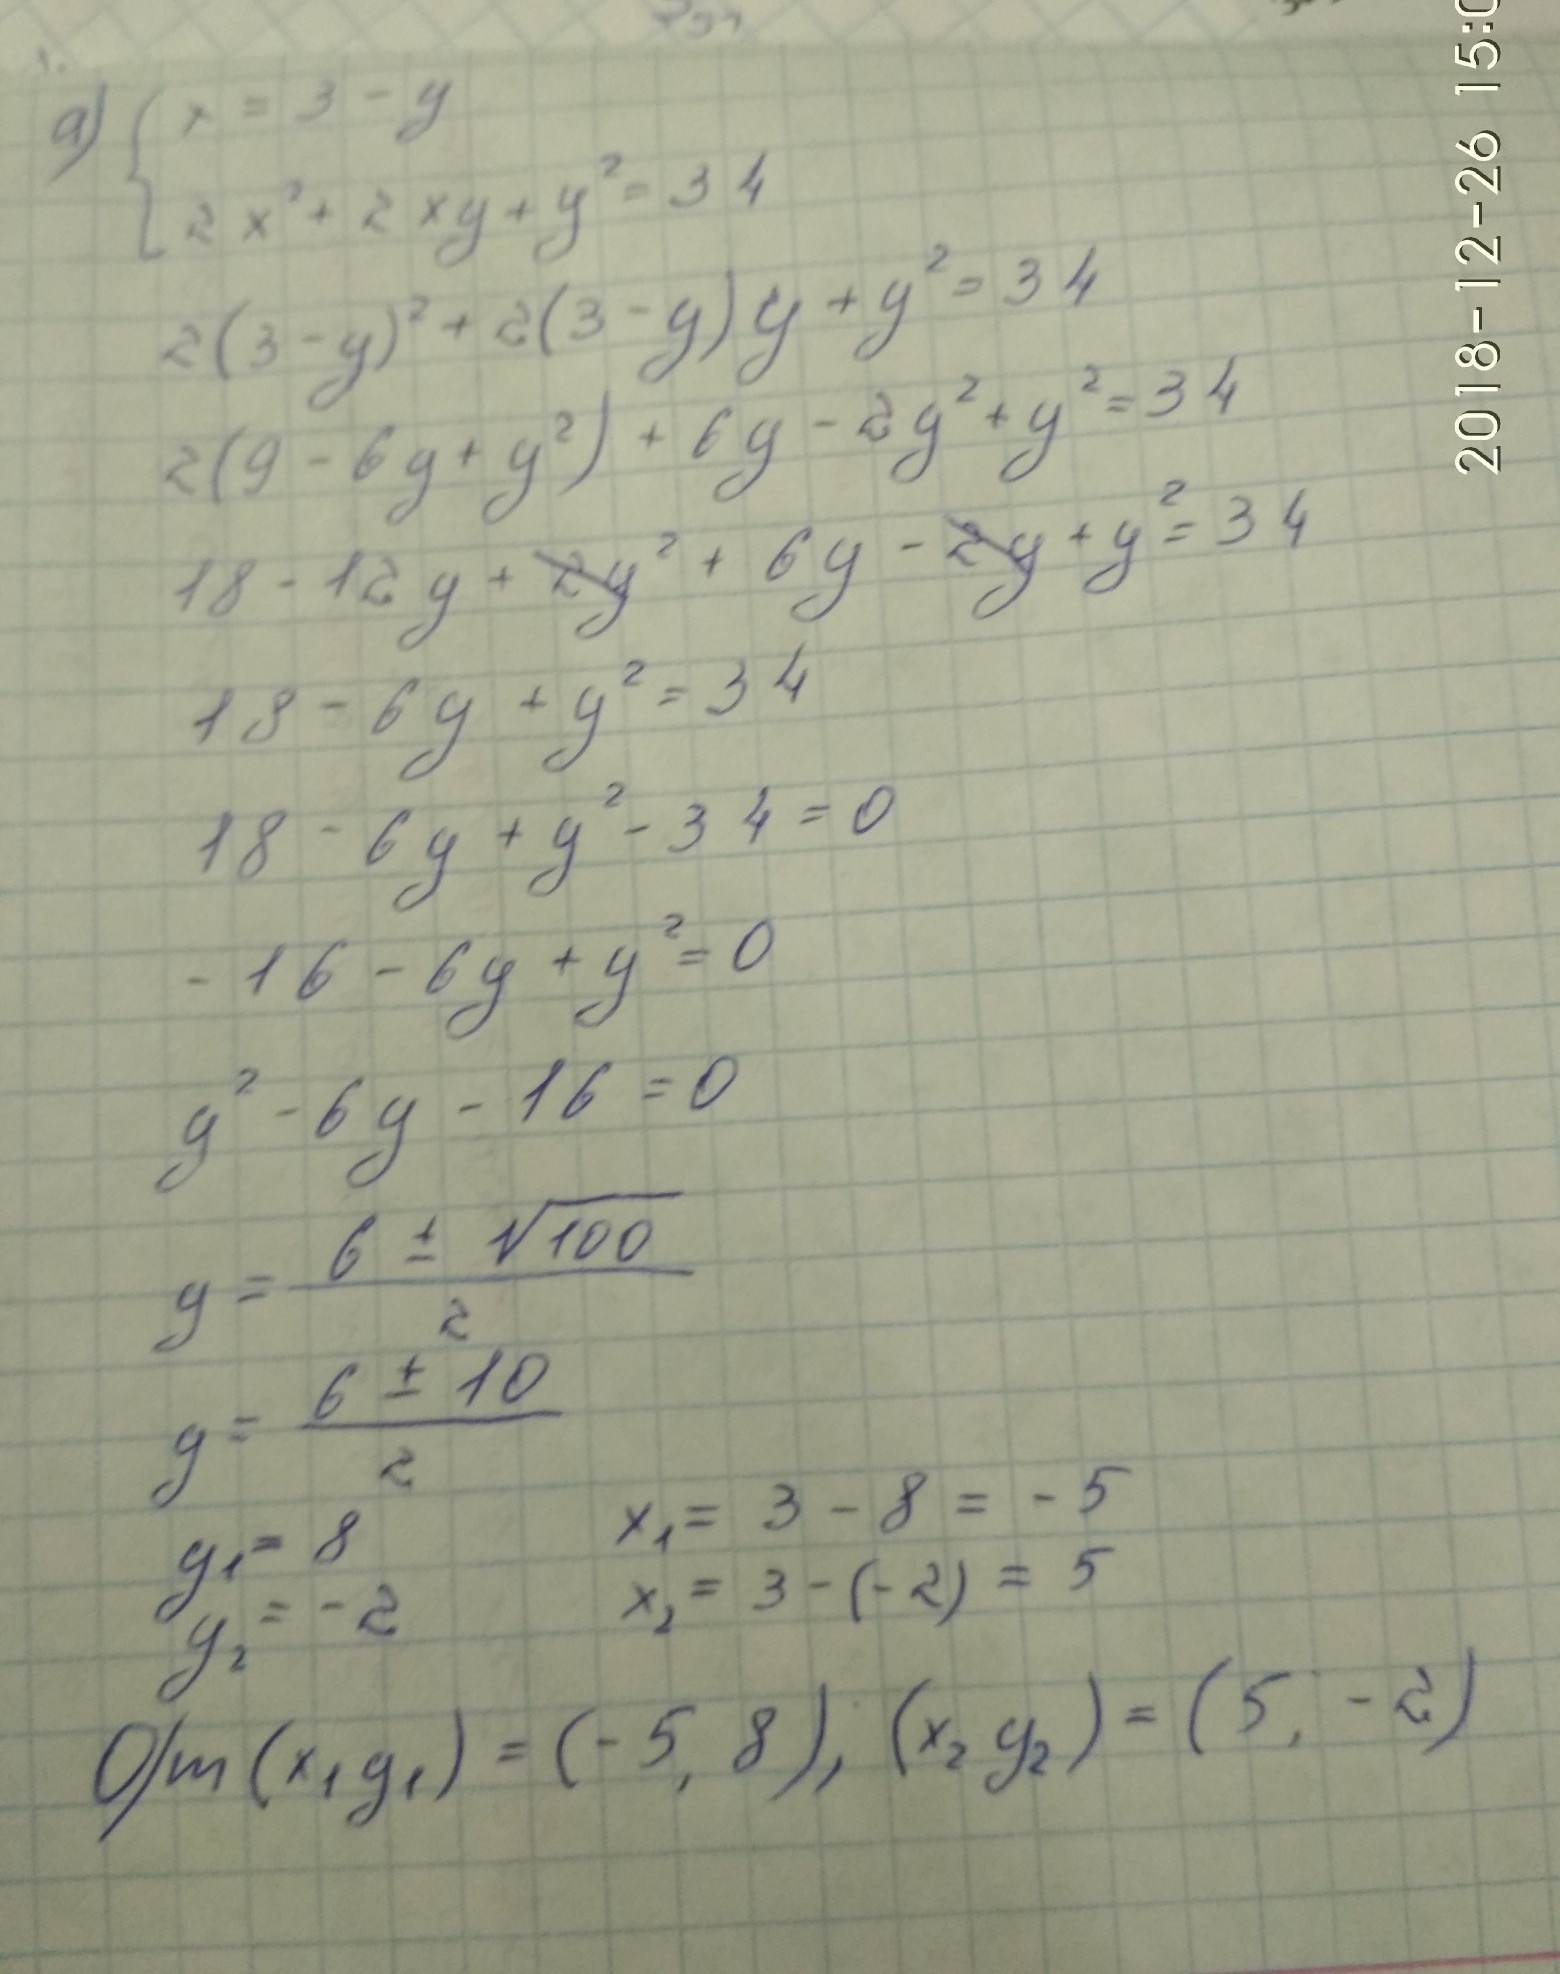 а) { x = 3 - y
2x² + 2xy + y² = 34
2(3 - y)² + 2(3 - y)y + y² = 34
2(9 - 6y + y²) + 6y - 2y² + y² = 34
18 - 12y + 2y² + 6y - 2y + y² = 34
18 - 6y + y² = 34
18 - 6y + y² - 34 = 0
-16 - 6y + y² = 0
y² - 6y - 16 = 0
y = (6 ± √100) / 2
y = (6 ± 10) / 2
y₁ = 8 x₁ = 3 - 8 = -5
y₂ = -2 x₂ = 3 - (-2) = 5
О/т (x₁ y₁) = (-5, 8), (x₂ y₂) = (5, -2)
2018-12-26 15:0